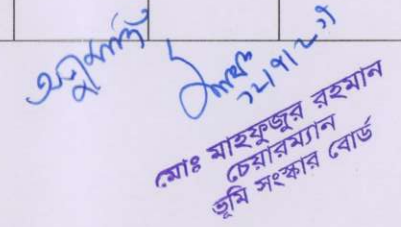 অনুমোদিত
মোঃ মাহফুজুর রহমান
চেয়ারম্যান
ভূমি সংস্কার বোর্ড